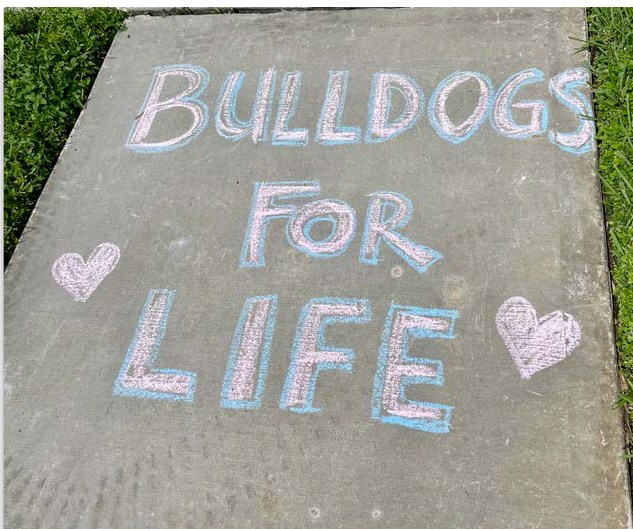 BULLDOGS
FOR
LIFE